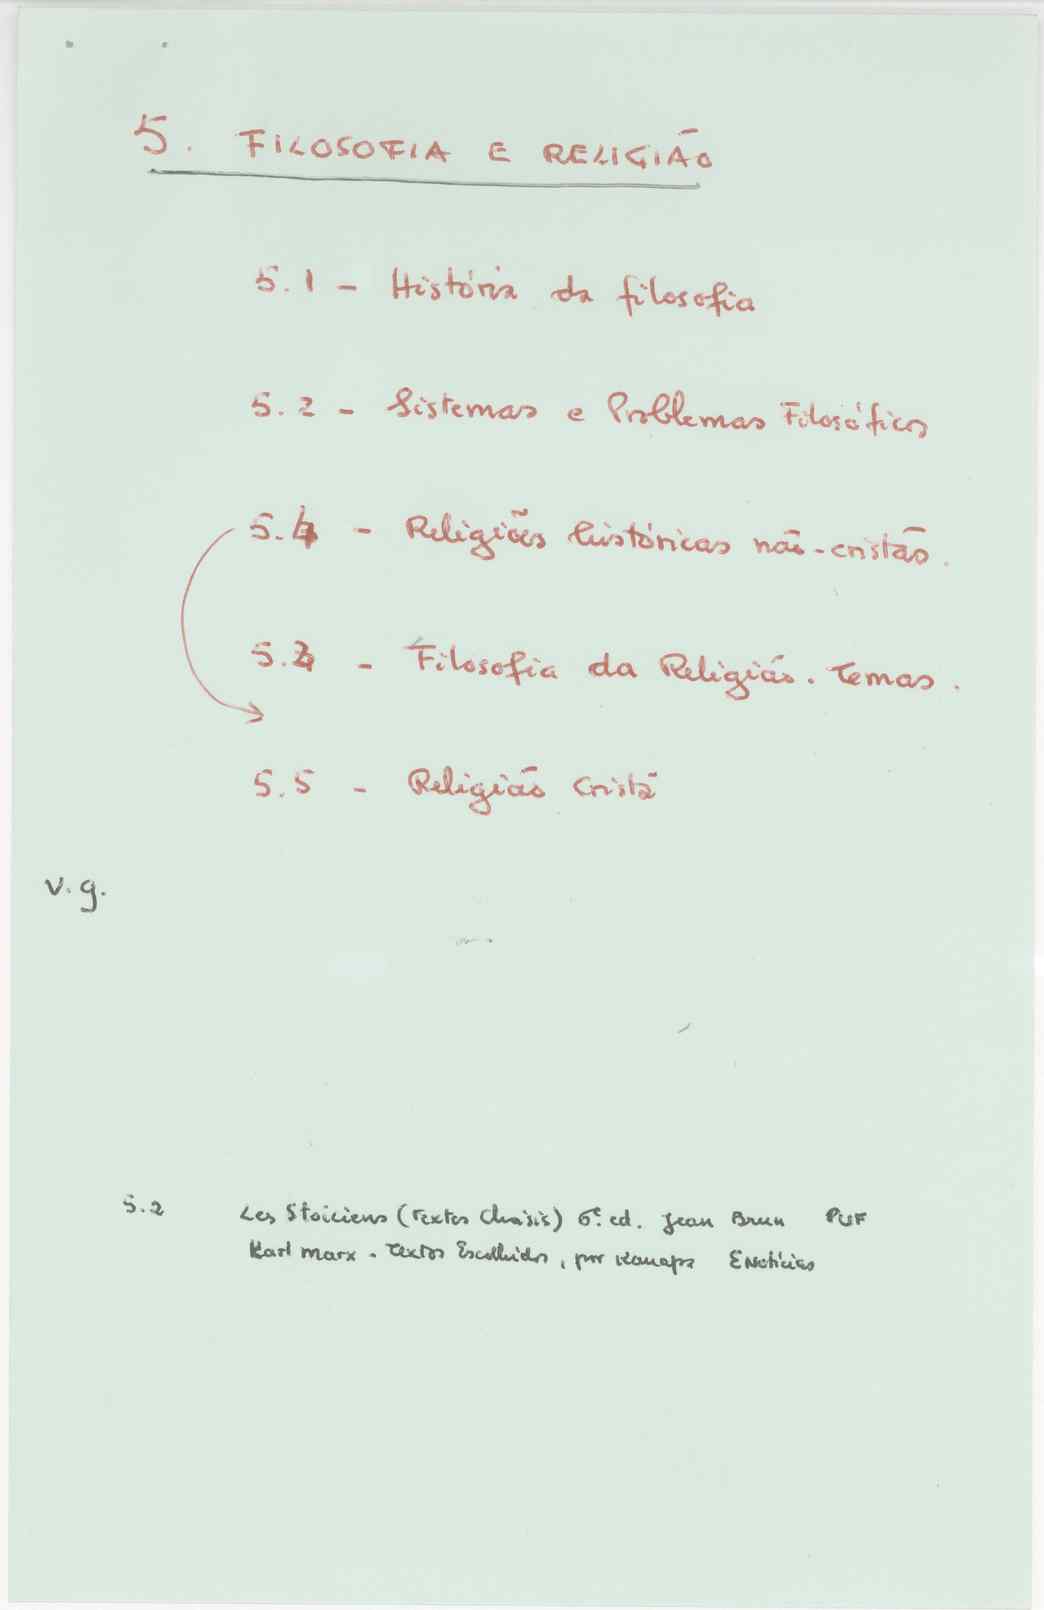 5. FILOSOFIA E RELIGIÃO
5.1 - História da filosofia
5.2 - Sistemas e Problemas Filosóficos
5.4 - Religiões históricas não-cristãs.
5.3 - Filosofia da Religião. Temas.
5.5 - Religião Cristã
v.g.
5.2 Les Stoiciens (Textes Choisis) 6ᵉ ed. Jean Brun PUF
Karl Marx - Textos Escolhidos, por Kanapa ENotícias